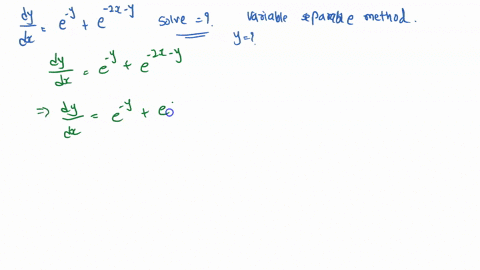 dy/dx = e^{-y} + e^{-2x-y} solve = ? Variable separable method.
y = ?
dy/dx = e^{-y} + e^{-2x-y}
⇒ dy/dx = e^{-y} + e